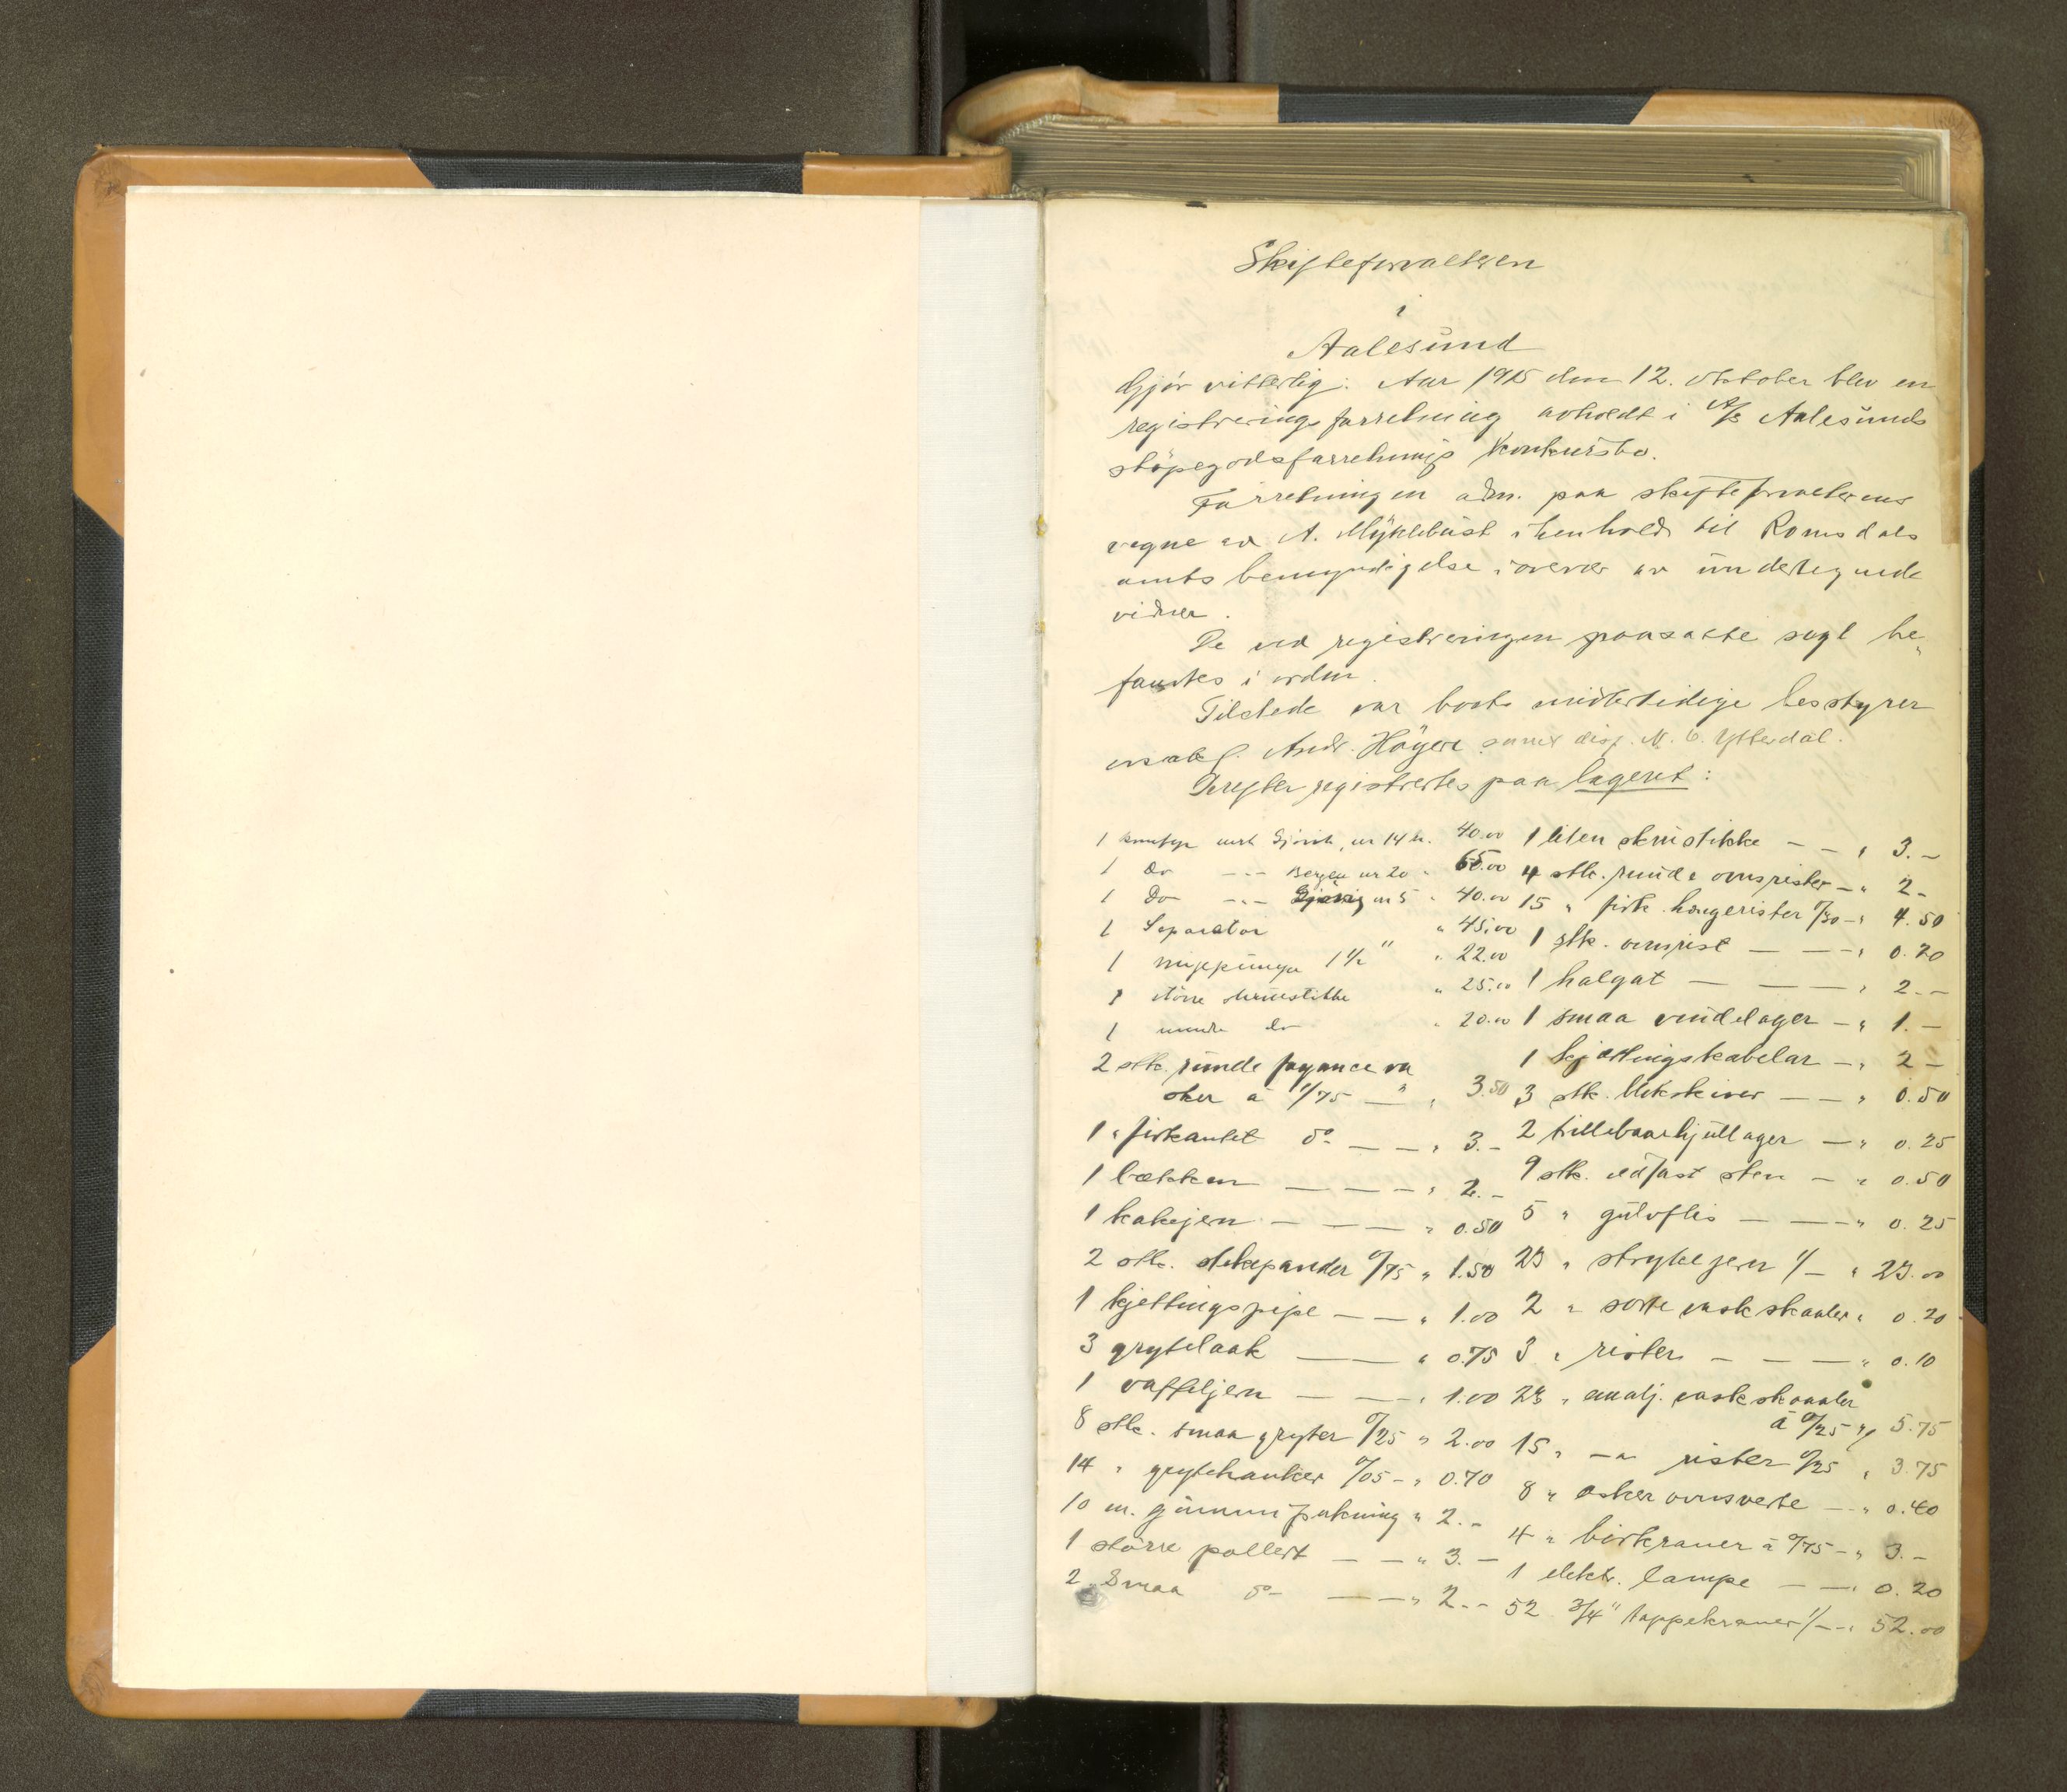 Skifteforvalteren
i
Aalesund
Gjør vitterlig: Aar 1915 den 12. oktober blev en
registreringsforretning avholdt i A/S Aalesunds
støpegodsforretnings konkursbo.
Forretningen adm. paa skifteforvalterens
vegne av A. Myklebust i henhold til Romsdals
amts bemyndigelse i overvær av undertegnede
vidner.
De ved registreringen paasatte segl be-
fantes i orden.
Tilstede var boets midlertidige bestyrer
Andr. Høyere samt disp. N. C. Ytterdal.
Derefter registrertes paa lageret:
1 nr 14 kr. 40.00
1 Do --- Bergen nr 20 " 65.00
1 Do --- nr 5 " 40.00
1 Separator " 45.00
1 1½" " 22.00
1 større skrustikke " 25.00
1 mindre do " 20.00
2 stk. runde fayance va
sker à 1/75 — " 3.50
1 " firkantet do — — " 3.-
1 bekken — — — " 2.-
1 kakejern — — — " 0.50
2 stk. stekepander 0/75 " 1.50
1 kjettingspipe — — " 1.00
3 grytelaak — — " 0.75
1 vaffeljern — — " 1.00
8 stk. smaa gryter 0/25 " 2.00
14 " grytehanker 0/05 - " 0.70
10 m. gummipakning " 2.-
1 større pollert — — " 3.-
2 " Smaa do — — " 2.-
1 liten skrustikke — — " 3.-
4 stk. runde ovnsrister — " 2-
15 " firk. hængerister 0/30 - " 4.50
1 stk. ovnsrist — — " 0.20
1 halgat — — — " 2.-
1 smaa vindelager — " 1.-
1 kjættingskabelar — " 2-
3 stk. blikskiver — — " 0.50
2 trillebaarhjullager — " 0.25
9 stk. ildfast sten — " 0.50
5 " gulvflis — — " 0.25
23 " strykejern 1/- " 23.00
2 " sorte vaskskaaler " 0.20
3 " rister — — — " 0.10
23 " emalj. vaskskaaler
à 0/25 " 5.75
15 " -"- rister 0/25 " 3.75
8 " æsker ovnsverte — " 0.40
4 " kraner à 0/75 - " 3.-
1 elektr. lampe — — " 0.20
52 3/4" tappekraner 1/- " 52.00